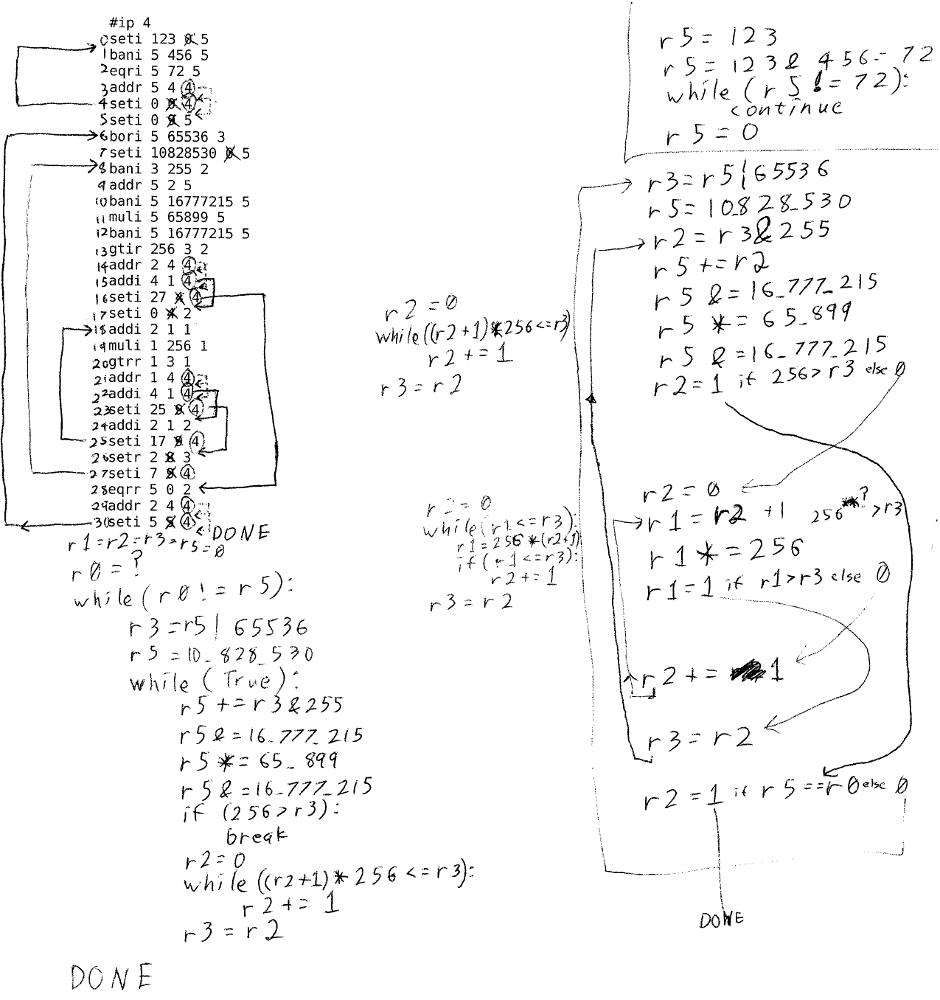 #ip 4
0 seti 123 5
1 bani 5 456 5
2 eqri 5 72 5
3 addr 5 4 4
4 seti 0 4
5 seti 0 5
6 bori 5 65536 3
7 seti 10828530 5
8 bani 3 255 2
9 addr 5 2 5
10 bani 5 16777215 5
11 muli 5 65899 5
12 bani 5 16777215 5
13 gtir 256 3 2
14 addr 2 4 4
15 addi 4 1 4
16 seti 27 4
17 seti 0 2
18 addi 2 1 1
19 muli 1 256 1
20 gtrr 1 3 1
21 addr 1 4 4
22 addi 4 1 4
23 seti 25 4
24 addi 2 1 2
25 seti 17 4
26 setr 2 3
27 seti 7 4
28 eqrr 5 0 2
29 addr 2 4 4
30 seti 5 4
DONE
r1=r2=r3=r5=0
r0=?
while(r0!=r5):
r3=r5|65536
r5=10_828_530
while(True):
r5+=r3&255
r5&=16_777_215
r5*=65_899
r5&=16_777_215
if (256>r3):
break
r2=0
while((r2+1)*256<=r3):
r2+=1
r3=r2
DONE
r2=0
while((r2+1)*256<=r3)
r2+=1
r3=r2
r2=0
while(r1<=r3):
r1=256*(r2+1)
if(r1<=r3):
r2+=1
r3=r2
r5=123
r5=123&456=72
while(r5!=72):
continue
r5=0
r3=r5|65536
r5=10_828_530
r2=r3&255
r5+=r2
r5&=16_777_215
r5*=65_899
r5&=16_777_215
r2=1 if 256>r3 else 0
r2=0
r1=r2+1 256**?>r3
r1*=256
r1=1 if r1>r3 else 0
r2+=1
r3=r2
r2=1 if r5==r0 else 0
DONE